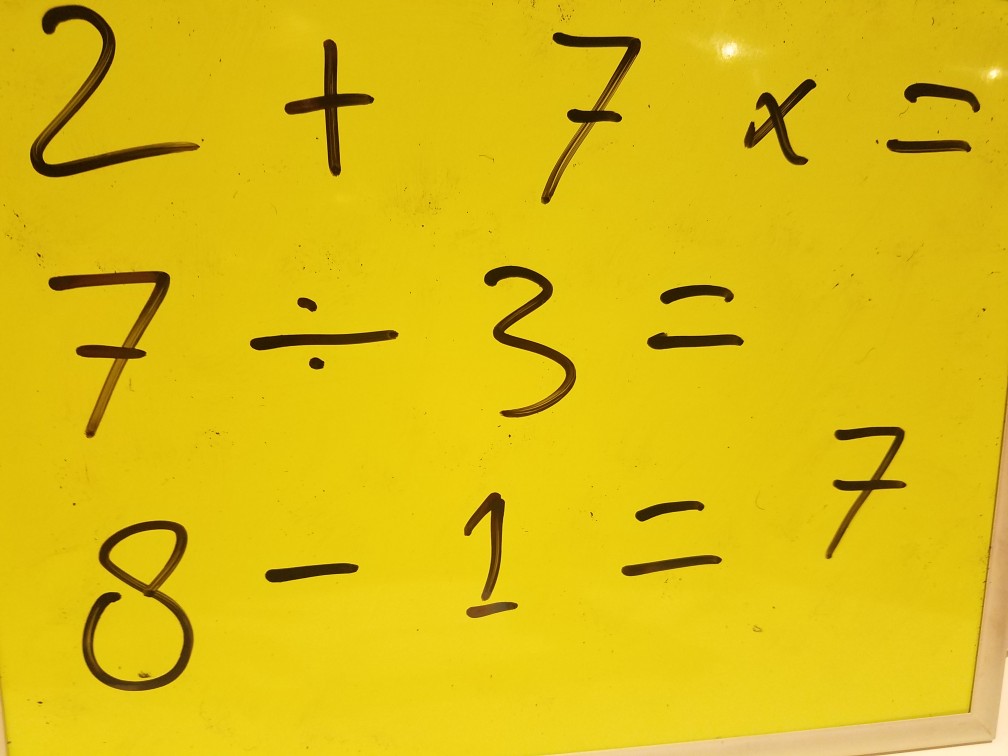 2 + 7 x =
7 ÷ 3 =
8 - 1 = 7